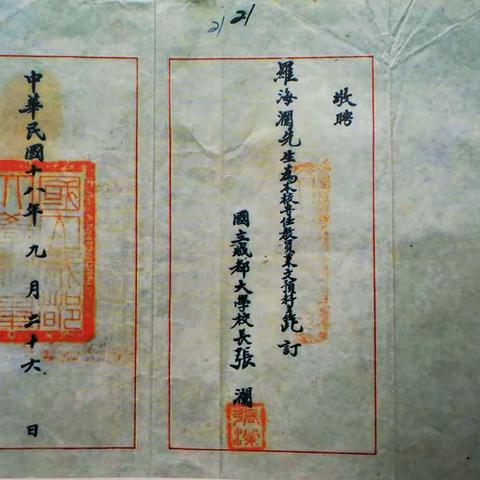 21 21
敬聘
羅海瀾先生為本校專任教員兼文預科此訂
國立成都大學校長張瀾
張瀾
中華民國十八年九月二十六日